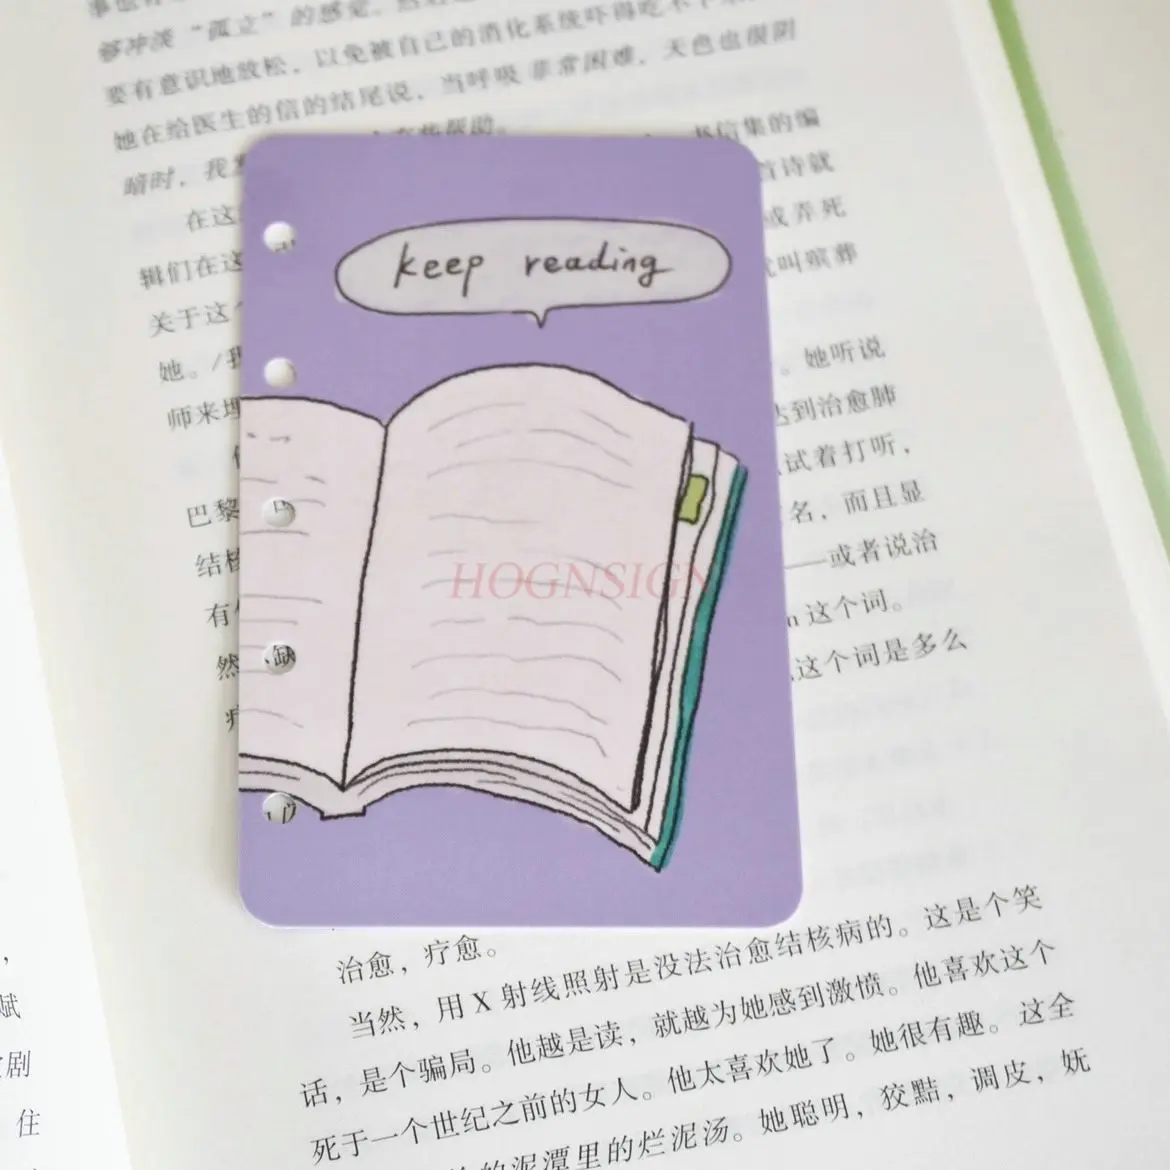 够冲淡“孤立”的感觉，然后
要有意识地放松，以免被自己的消化系统吓得吃不下
她在给医生的信的结尾说，当呼吸非常困难，天色也很阴
暗时，我
书信集的编
在这
首诗就
辑们在这
或弄死
关于这
叫殡葬
她。/我
。她听说
师来埋
达到治愈肺
试着打听，
巴黎
名，而且显
结核
——或者说治
有
这个词。
然
这个词是多么
keep reading
HOGNSIGN
缺
治愈，疗愈。
当然，用 X 射线照射是没法治愈结核病的。这是个笑
话，是个骗局。他越是读，就越为她感到激愤。他喜欢这个
死于一个世纪之前的女人。他太喜欢她了。她很有趣。这全
的泥潭里的烂泥汤。她聪明，狡黠，调皮，妩
赋
剧
住